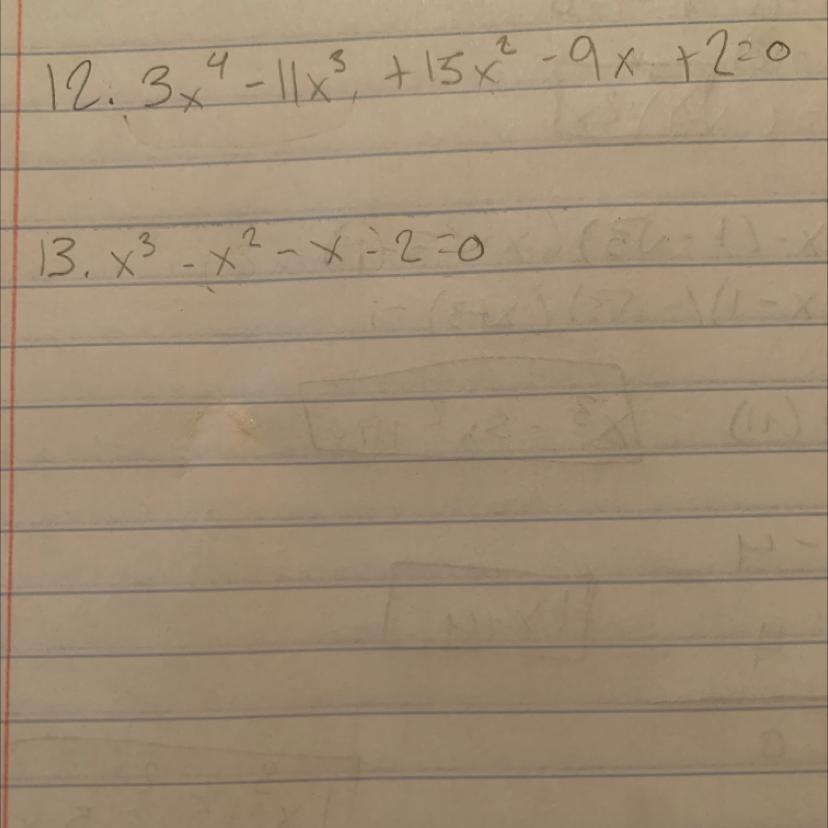 12. 3x⁴ - 11x³ + 15x² - 9x + 2 = 0
13. x³ - x² - x - 2 = 0